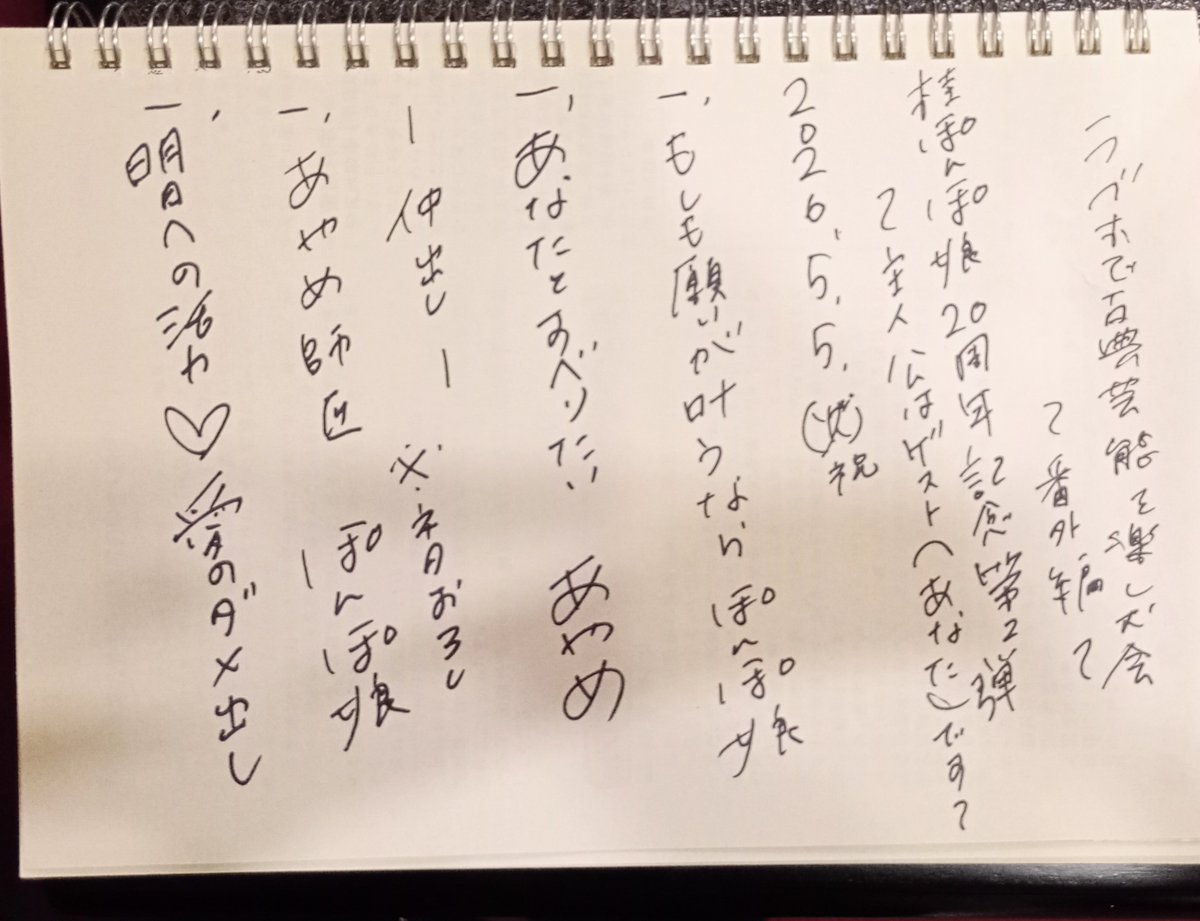 ラブホで古典芸能を楽しむ会
〜番外編〜
桂ぽんぽ娘20周年記念第2弾
〜主人公はゲストへあなたです〜
2026.5.5.(火)祝
一、もしも願いが叶うなら ぽんぽ娘
一、あなたとすべりたい あやめ
ー仲出しー
一、あやめ師匠 ぽんぽ娘
ネタおろし
一、明日への活力♡愛のダメ出し